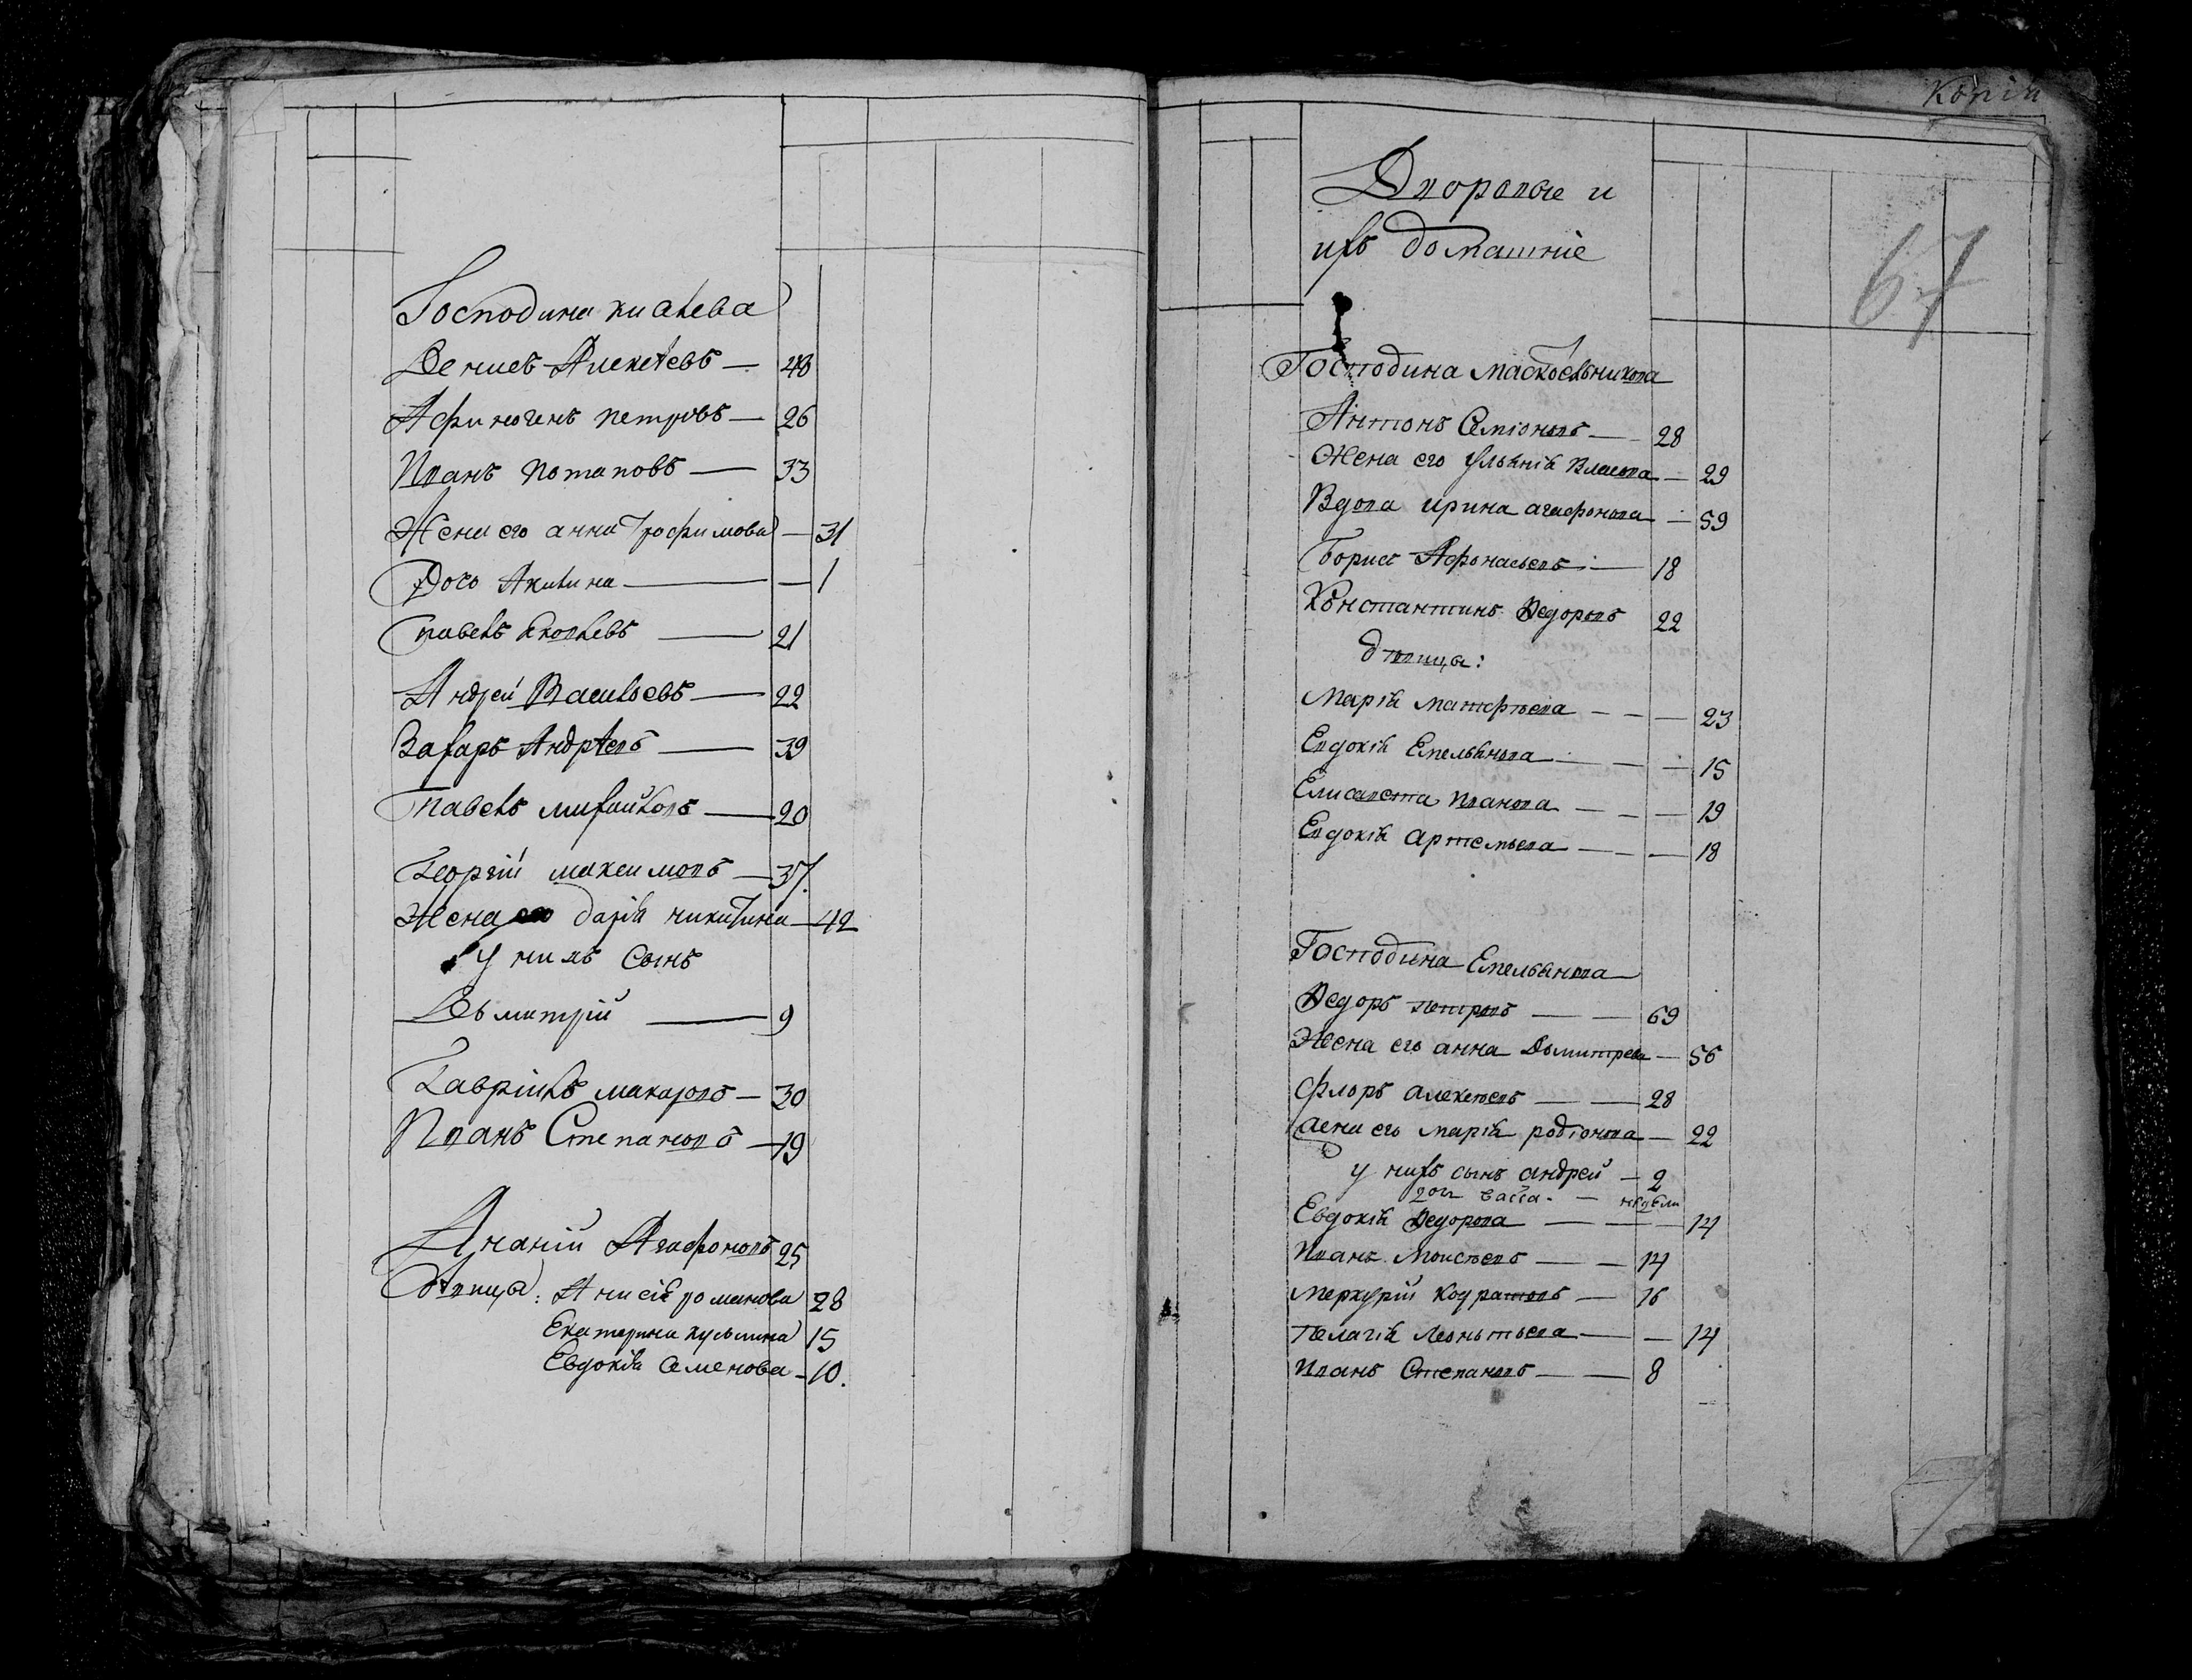 Господина киалева
Денисъ Алексѣевъ — 48
Афиногенъ петровъ — 26
Иванъ потаповъ — 33
Жена его анна Трофимова — 31
Дочь Акилина — 1
павелъ яковлевъ — 21
Андрей Васильевъ — 22
Захаръ Андрѣевъ — 39
Павелъ михайловъ — 20
Георгій максимовъ — 37.
Жена его дарія никитина — 42
у нихъ сынъ
Дьмитрій — 9
Гаврiилъ макаровъ — 30
Иванъ Степановъ — 19
Ананій Агафоновъ 25
дѣвицы: Анисія романова 28
Екатерина кузьмина 15
Евдокія Семенова — 10.
Копія
67
Дворовые и
ихъ домашніе
Господина масльникова
Антонъ Семіоновъ — 28
Жена его Ульянія Власова — 29
Вдова ирина агафонова — 59
Борисъ Афонасьевъ — 18
Константинъ Ѳедоровъ 22
дѣвицы:
Марія матфѣева — 23
Евдокія Емельянова — 15
Елисавета иванова — 19
Евдокія артемьева — 18
Господина Емельянова
Ѳедоръ петровъ — 69
Жена его анна Дьмитрева — 56
флоръ алексѣевъ — 28
жена его марія родіонова — 22
у нихъ сынъ андрей — 2
дочь васса — недѣли
Евдокія Ѳедорова — 14
Иванъ Моисѣевъ — 14
Меркурій кодратовъ — 16
Пелагія Леонтьева — 14
Иванъ Степановъ — 8